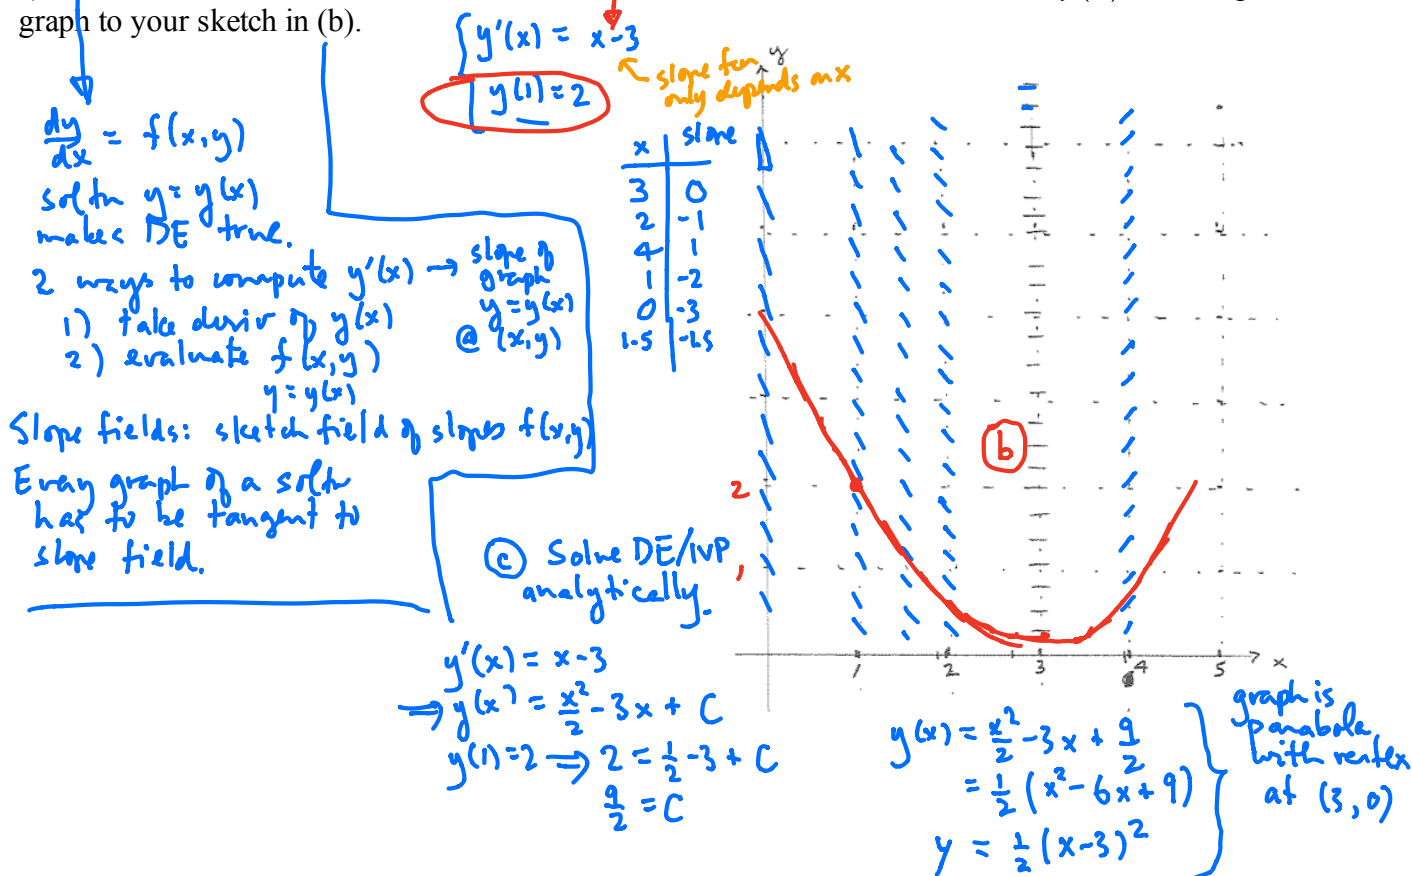 graph to your sketch in (b).
y'(x) = x-3
y(1) = 2
slope fcn
only depends on x
dy/dx = f(x,y)
soltn y = y(x)
makes DE true.
2 ways to compute y'(x) → slope of
graph
y = y(x)
@ (x,y)
1) take deriv of y(x)
2) evaluate f(x,y)
y = y(x)
Slope fields: sketch field of slopes f(x,y)
Every graph of a soltn
has to be tangent to
slope field.
x | slope
3 | 0
2 | -1
4 | 1
1 | -2
0 | -3
1.5 | -1.5
y
b
2
1
1 2 3 4 5 x
c Solve DE/IVP
analytically.
y'(x) = x-3
⇒ y(x) = x²/2 - 3x + C
y(1)=2 ⇒ 2 = 1/2 - 3 + C
9/2 = C
y(x) = x²/2 - 3x + 9/2
= 1/2 (x² - 6x + 9)
y = 1/2 (x-3)²
graph is
parabola
with vertex
at (3,0)